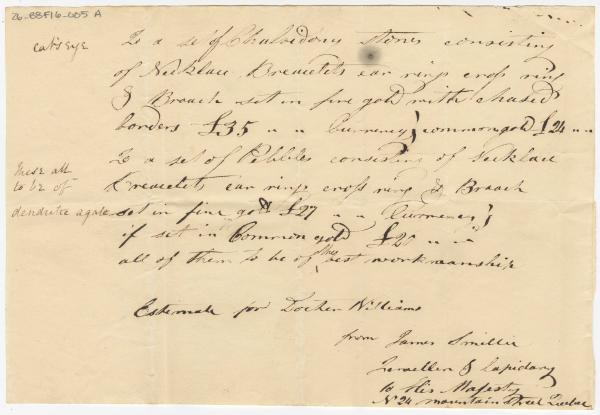 26-B8F16-005 A
cat's eye
To a set of Chalsidony stones consisting
of Necklace Breacelets ear rings cross ring
& Broach set in fine gold with chased
borders £35 " " Currency; common gold £24 " "
To a set of Pebbles consisting of Necklace
Breacelets ear rings cross ring & Broach
these all
to be of
dendritic agate
set in fine gold £27 " " Currency;
if set in Common gold £20 " "
all of them to be of the best workmanship
Estemate for Docter Williams
from James Smillie
Jeweller & Lapidary
to His Majesty
No 24 mountain street Quebec